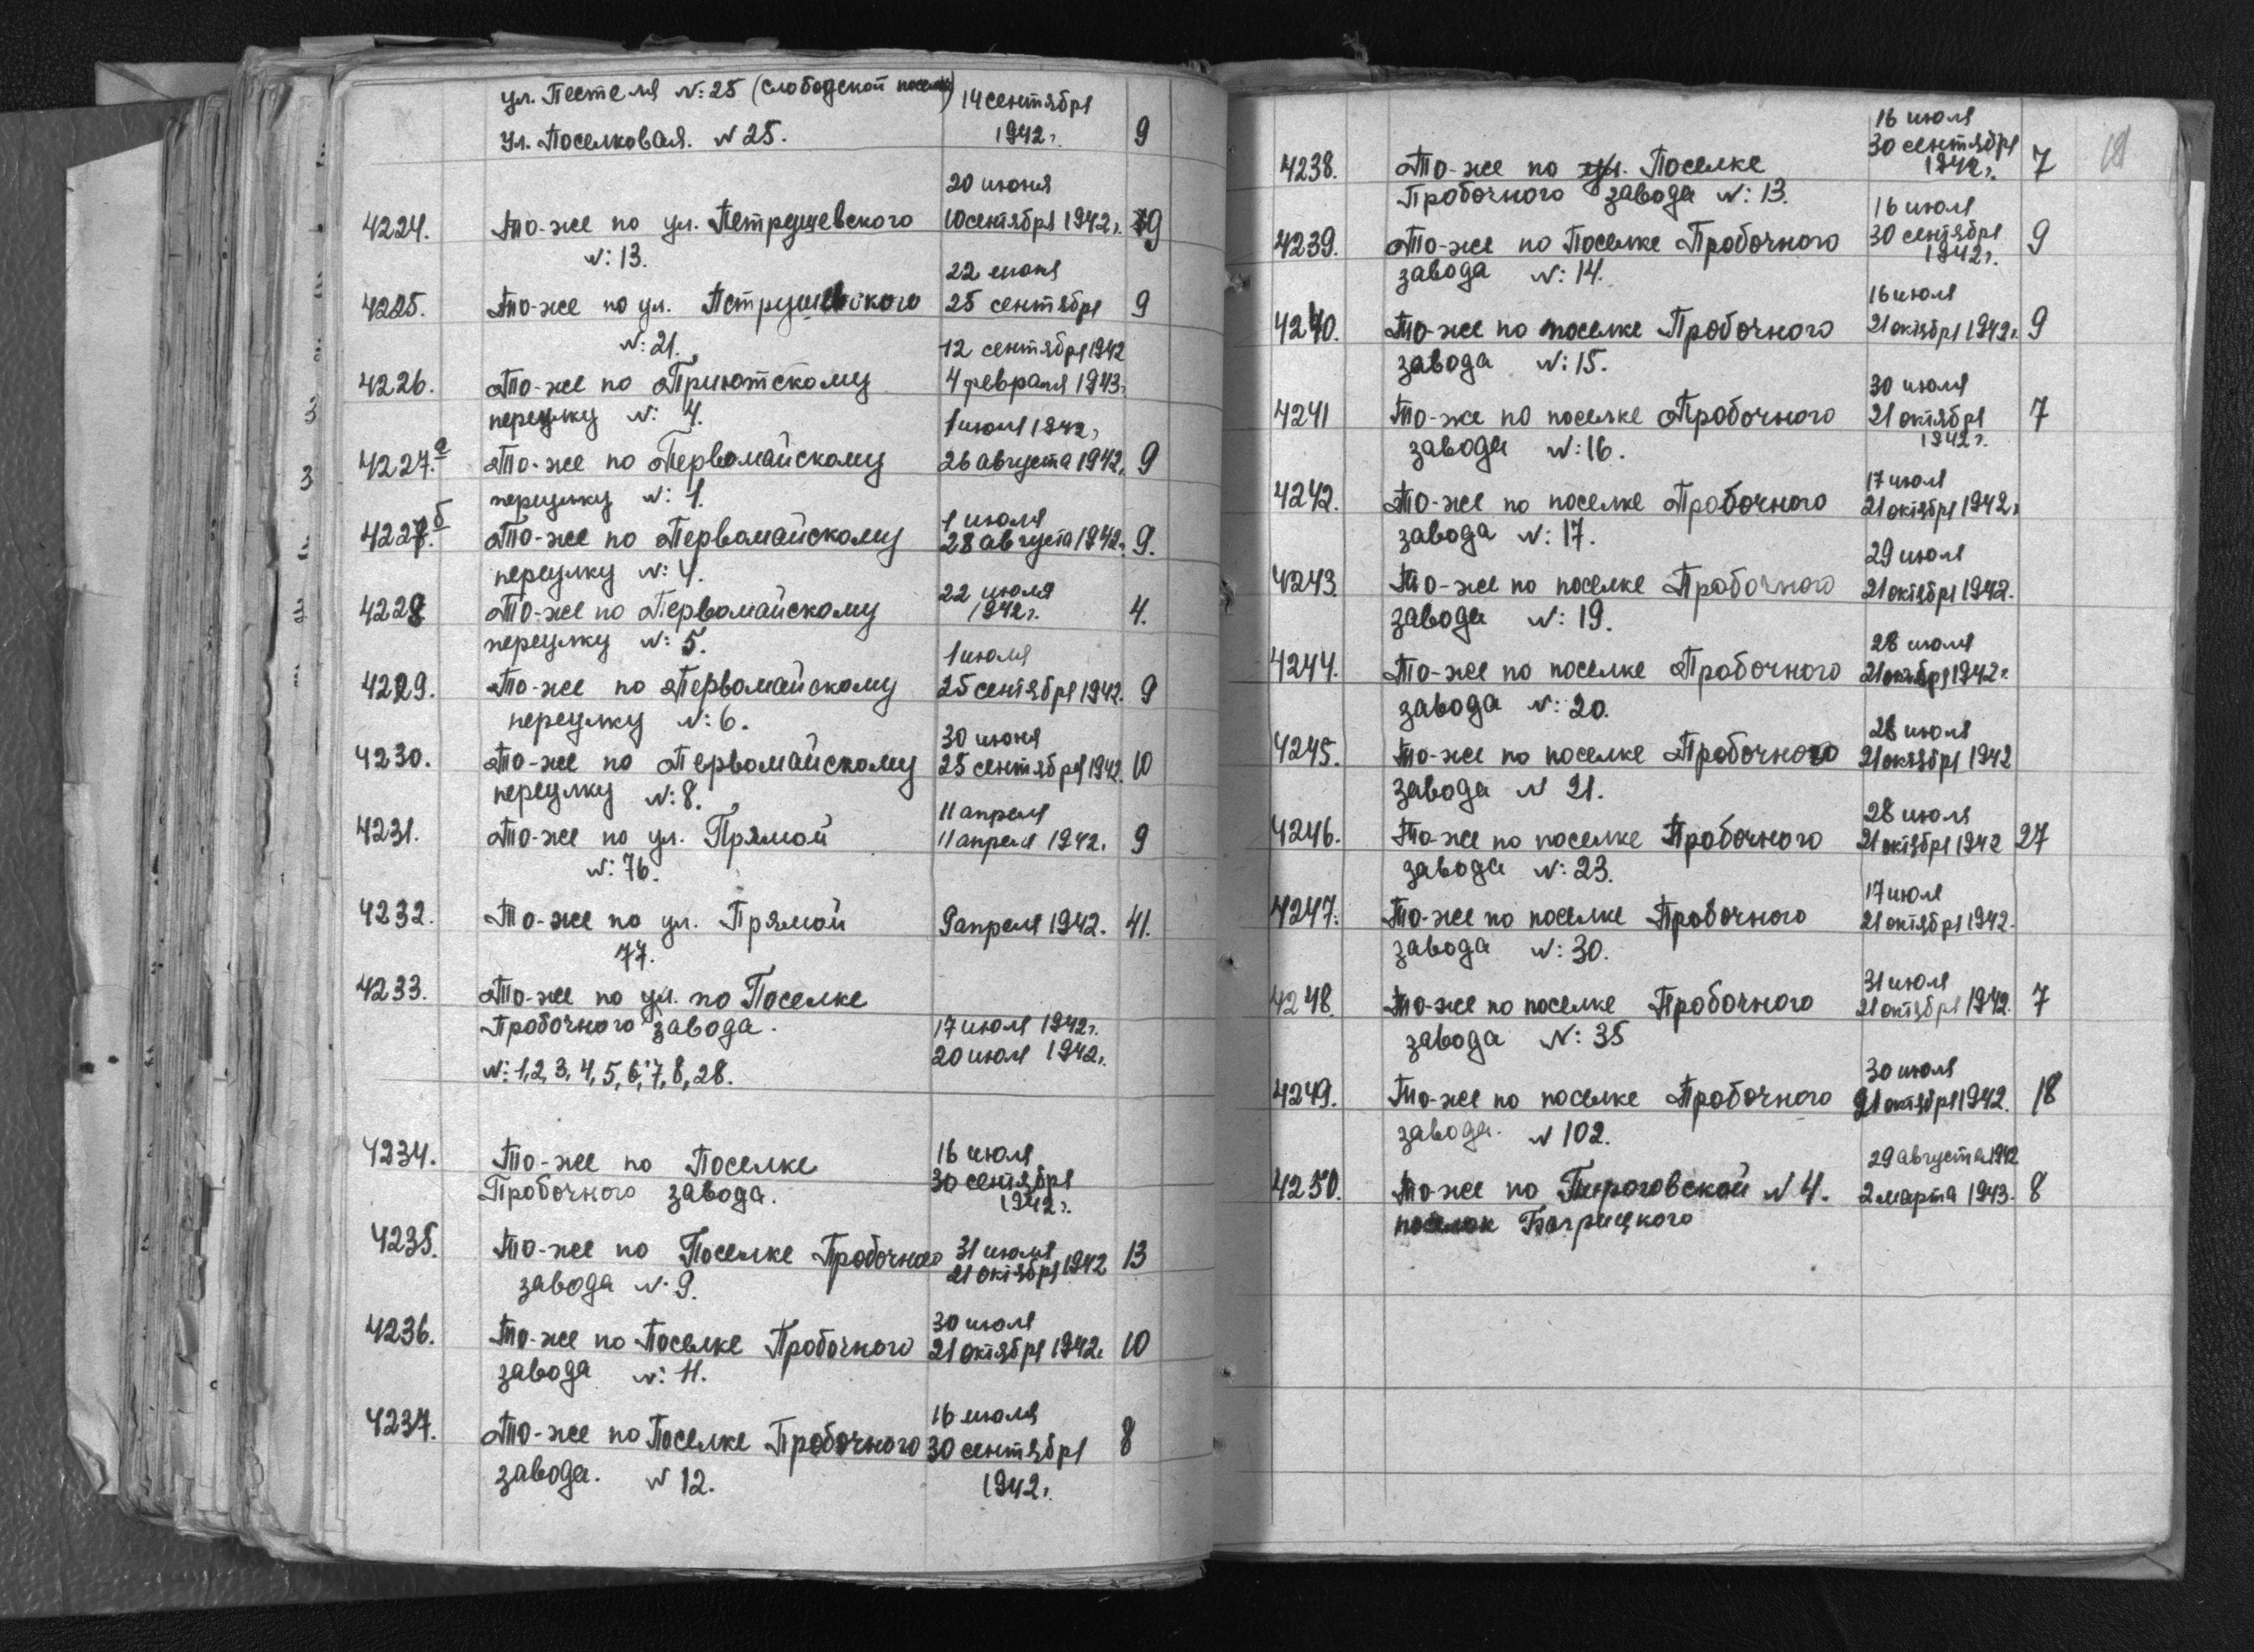 ул. Пестеля №: 25 (слободской поселок) 14 сентября
ул. Поселковая. № 25. 1942 г. 9
20 июня
4224. То-же по ул. Петрушевского 10 сентября 1942 г. 9
№: 13.
22 июня
4225. То-же по ул. Петрушевского 25 сентября 9
№: 21.
12 сентября 1942
4226. То-же по Приютскому 4 февраля 1943 г.
переулку №: 4.
1 июля 1942 г.
4227.а То-же по Первомайскому 26 августа 1942 г. 9
переулку №: 1.
1 июля
4227.б То-же по Первомайскому 28 августа 1942 г. 9.
переулку №: 4.
22 июля
4228 То-же по Первомайскому 1942 г. 4.
переулку №: 5.
1 июля
4229. То-же по Первомайскому 25 сентября 1942. 9
переулку №: 6.
30 июня
4230. То-же по Первомайскому 25 сентября 1942. 10
переулку №: 8.
11 апреля
4231. То-же по ул. Прямой 11 апреля 1942. 9
№: 76.
4232. То-же по ул. Прямой 9 апреля 1942. 41.
77.
4233. То-же по ул. по Поселке
Пробочного завода. 17 июля 1942 г.
20 июля 1942 г.
№: 1, 2, 3, 4, 5, 6, 7, 8, 28.
16 июля
4234. То-же по Поселке 30 сентября
Пробочного завода. 1942 г.
4235. То-же по Поселке Пробочного 31 июля 13
завода №: 9. 21 октября 1942
30 июля
4236. То-же по Поселке Пробочного 21 октября 1942 г. 10
завода №: 11.
16 июля
4237. То-же по Поселке Пробочного 30 сентября 8
завода. № 12. 1942 г.
16 июля
30 сентября
4238. То-же по ул. Поселке 1942 г. 7
Пробочного завода №: 13.
16 июля
4239. То-же по Поселке Пробочного 30 сентября 9
1942 г.
завода №: 14.
16 июля
4240. То-же по поселке Пробочного 21 октября 1942 г. 9
завода №: 15.
30 июля
4241 То-же по поселке Пробочного 21 октября 7
1942 г.
завода №: 16.
17 июля
4242. То-же по поселке Пробочного 21 октября 1942 г.
завода №: 17.
29 июля
4243. То-же по поселке Пробочного 21 октября 1942.
завода №: 19.
28 июля
4244. То-же по поселке Пробочного 21 октября 1942 г.
завода №: 20.
28 июля
4245. То-же по поселке Пробочного 21 октября 1942
завода № 21.
28 июля
4246. То-же по поселке Пробочного 21 октября 1942 27
завода №: 23.
17 июля
4247. То-же по поселке Пробочного 21 октября 1942.
завода №: 30.
31 июля
4248. То-же по поселке Пробочного 21 октября 1942. 7
завода №: 35
30 июля
4249. То-же по поселке Пробочного 21 октября 1942. 18
завода. № 102.
29 августа 1942
4250. То-же по Пироговской № 4. 2 марта 1943. 8
поселок Багрицкого